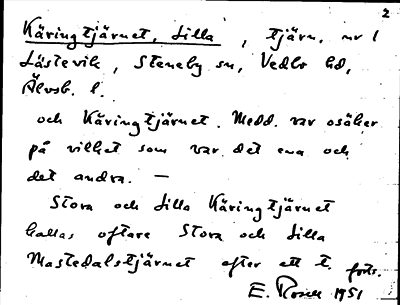 2
Käringtjärnet, Lilla, tjärn, nv l
Låstevik, Steneby sn, Vedbo hd,
Älvsb. l.
och Käringtjärnet. Medd. var osäker
på vilket som var det ena och
det andra. —
Stora och Lilla Käringtjärnet
kallas oftare Stora och Lilla
Mastedalstjärnet efter ett t. forts.
E. Rosell 1951